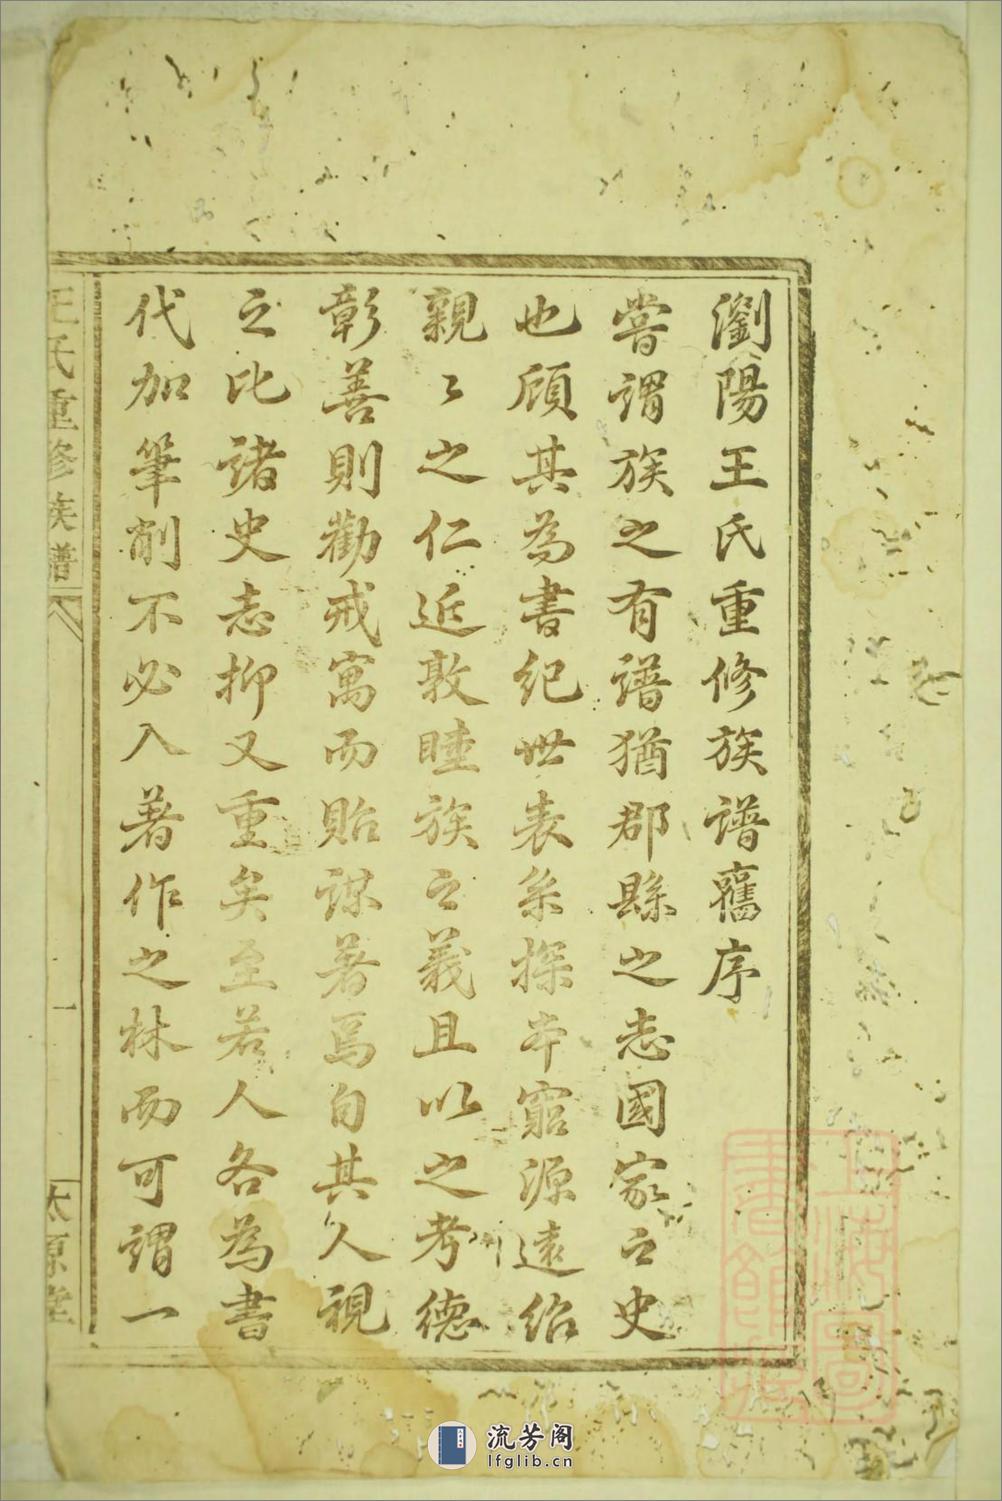 瀏陽王氏重修族譜舊序
嘗謂族之有譜猶郡縣之志國家之史
也顧其為書紀世表系探本窮源遠紹
親〻之仁近敦睦族之義且以之考德
彰善則勸戒寓而貽謀著焉自其人視
之比諸史志抑又重矣至若人各為書
代加筆削不必入著作之林而可謂一
王氏重修族譜
一
太原堂
上海圖書館藏
流芳阁
lfglib.cn